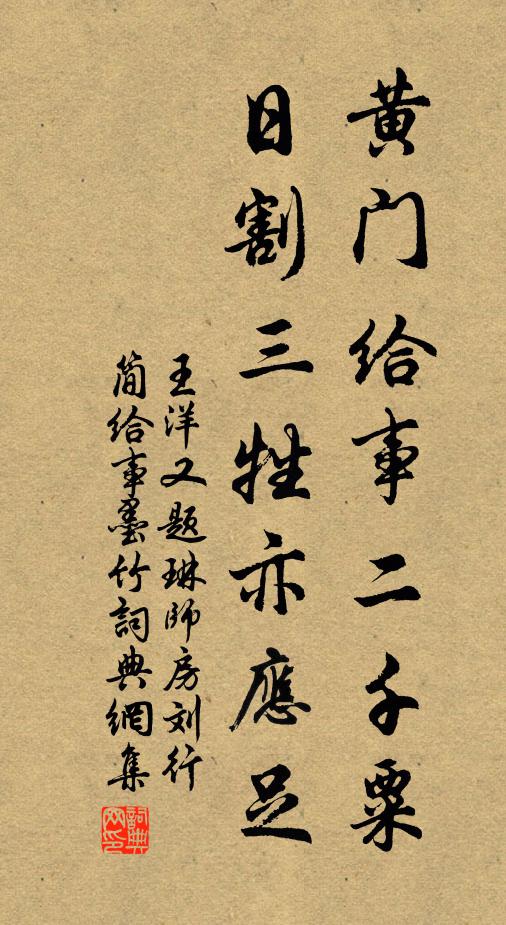 黄门给事二千粟
日割三牲亦應足
王洋又题琳師房刘行
简给事墨竹詞典網集
詞典网印